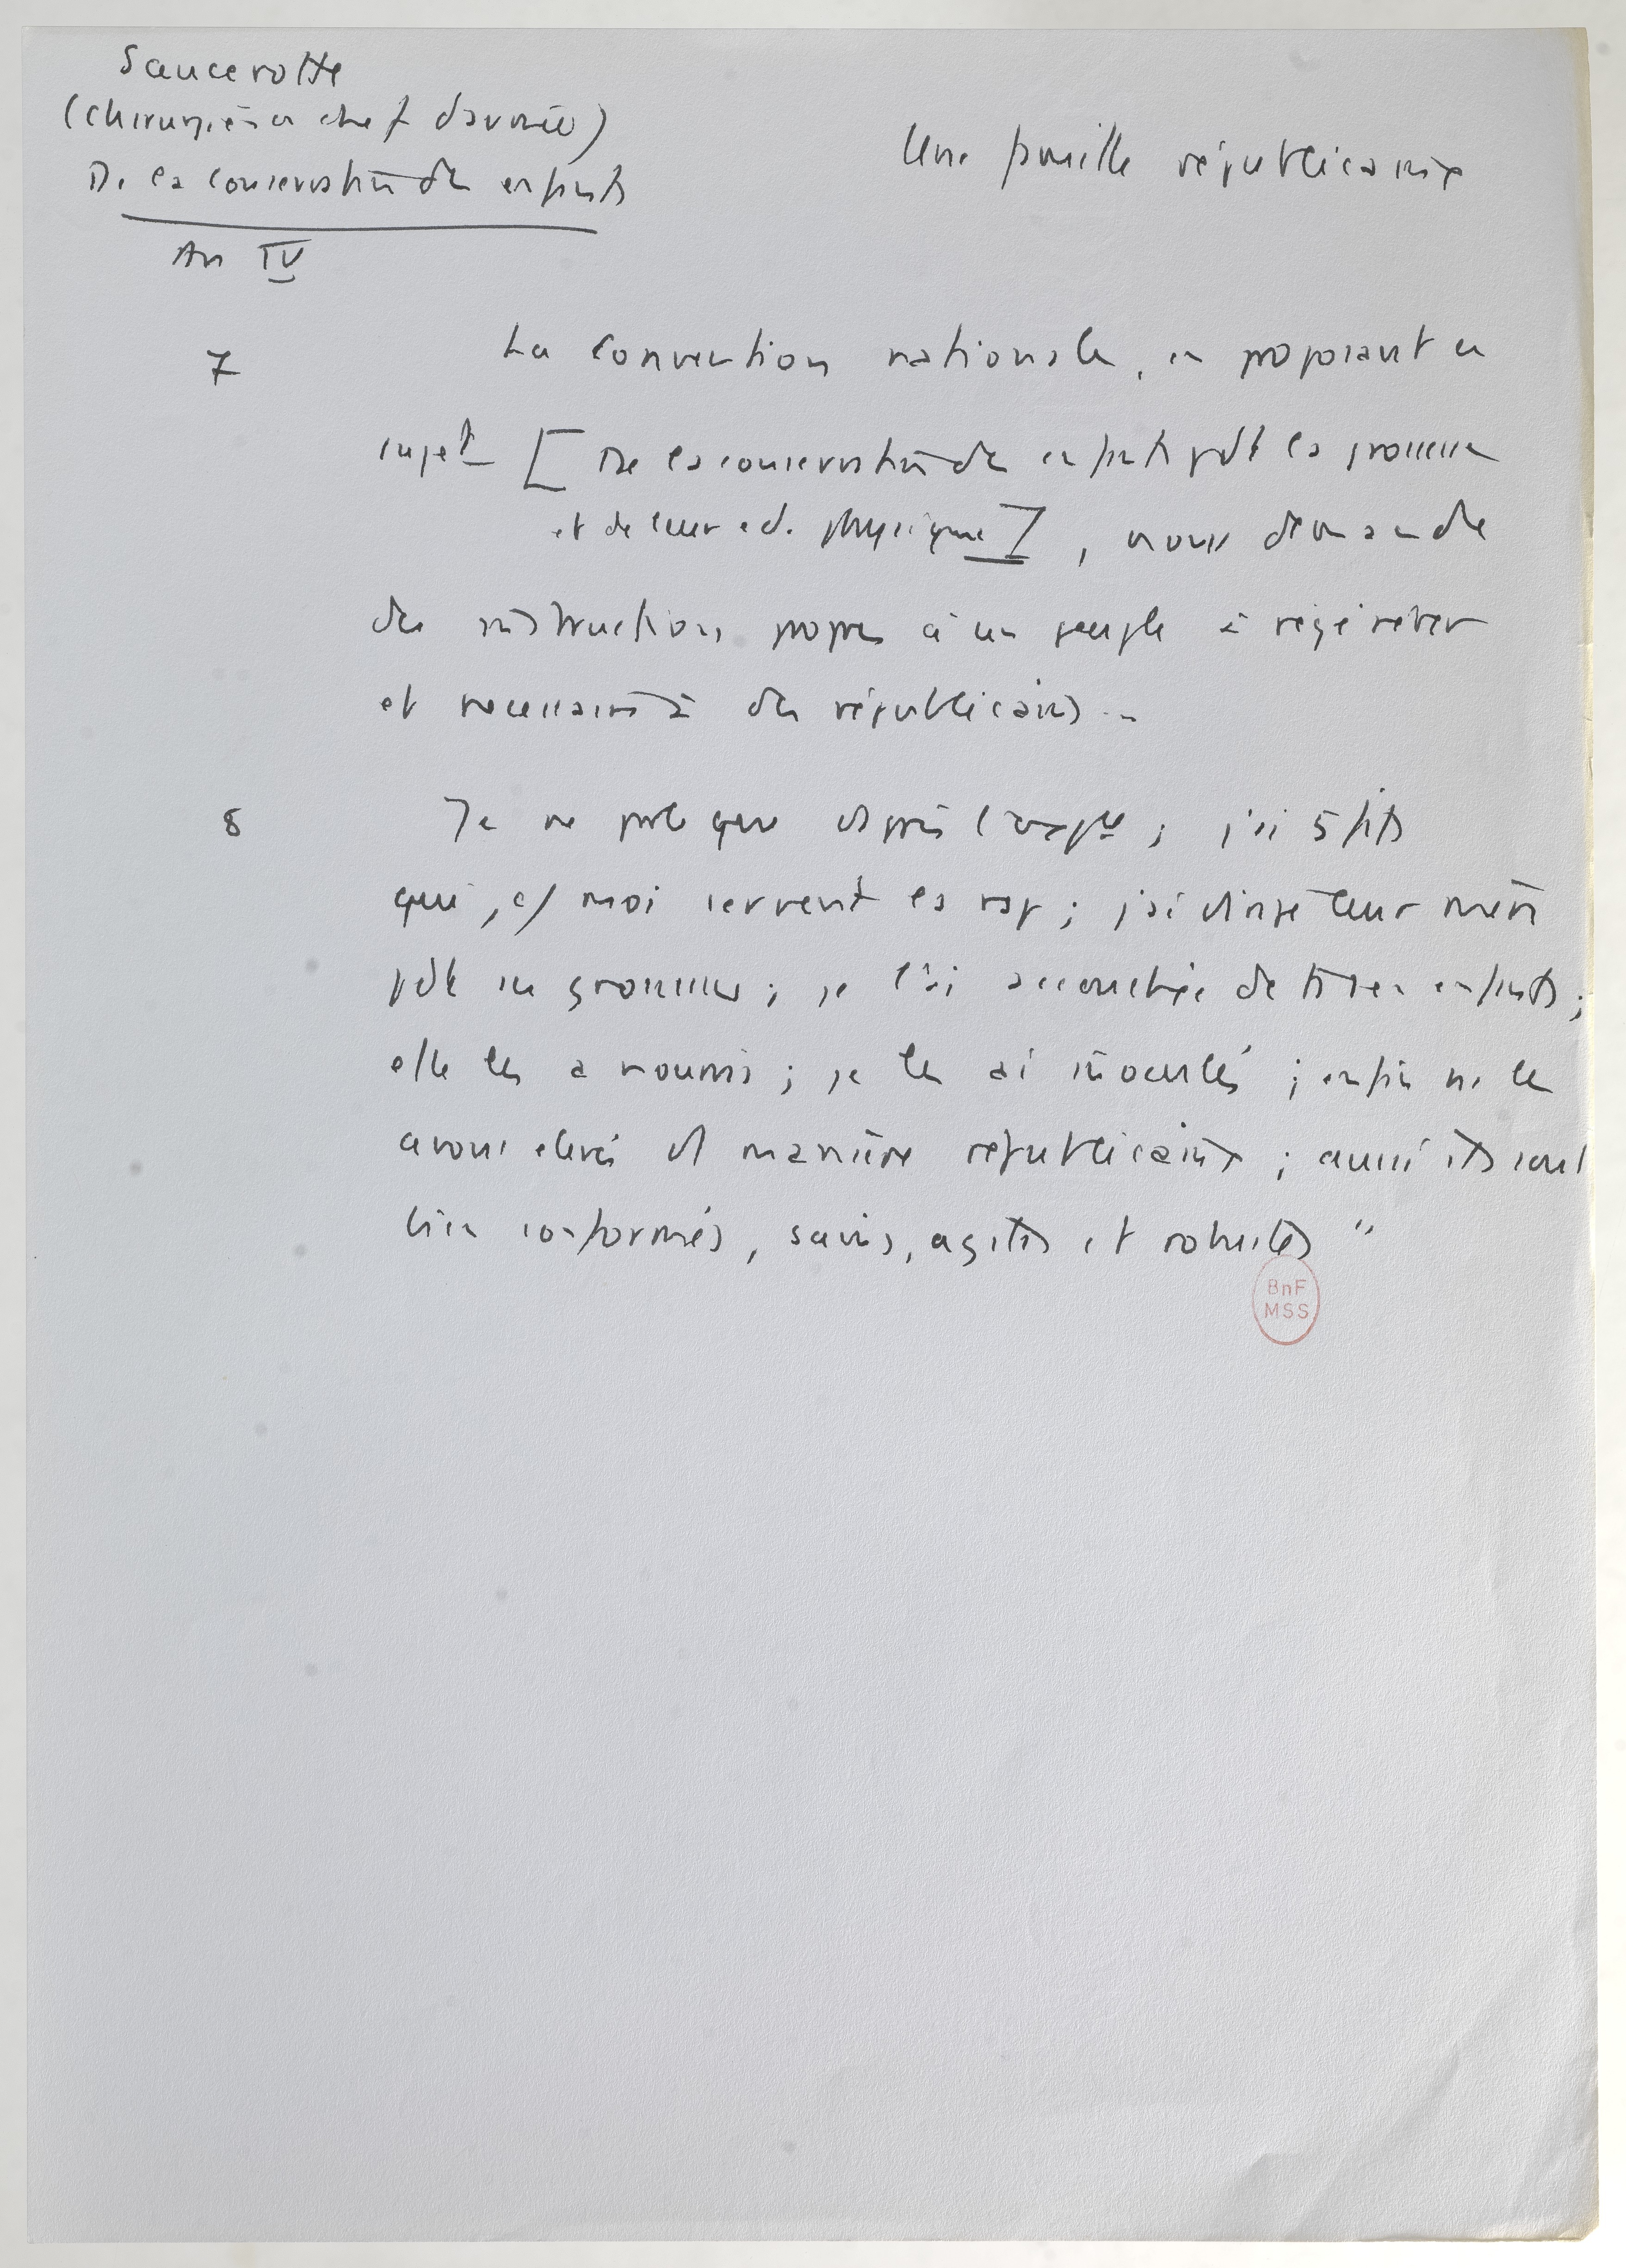 Saucerotte
(chirurgien en chef d'armée)
De la conservation des enfants
An IV
Une famille républicaine
7 La Convention nationale, en proposant ce
sujet [De la conservation des enfants pdt la grossesse
et de leur ed. physique], nous demande
des instructions propres à un peuple à régénérer
et nécessaires à des républicains ..
8 Je ne parle que d'après l'exple ; j'ai 5 fils
qui, c/ moi servent la rep ; j'ai dirigé leur mère
pdt ses grossesses ; je l'ai accouchée de ts ses enfants ;
elle les a nourris ; je les ai inoculés ; enfin ns les
avons élevés d manière républicaine ; aussi ils sont
bien conformés, sains, agiles et robustes "
BnF
MSS